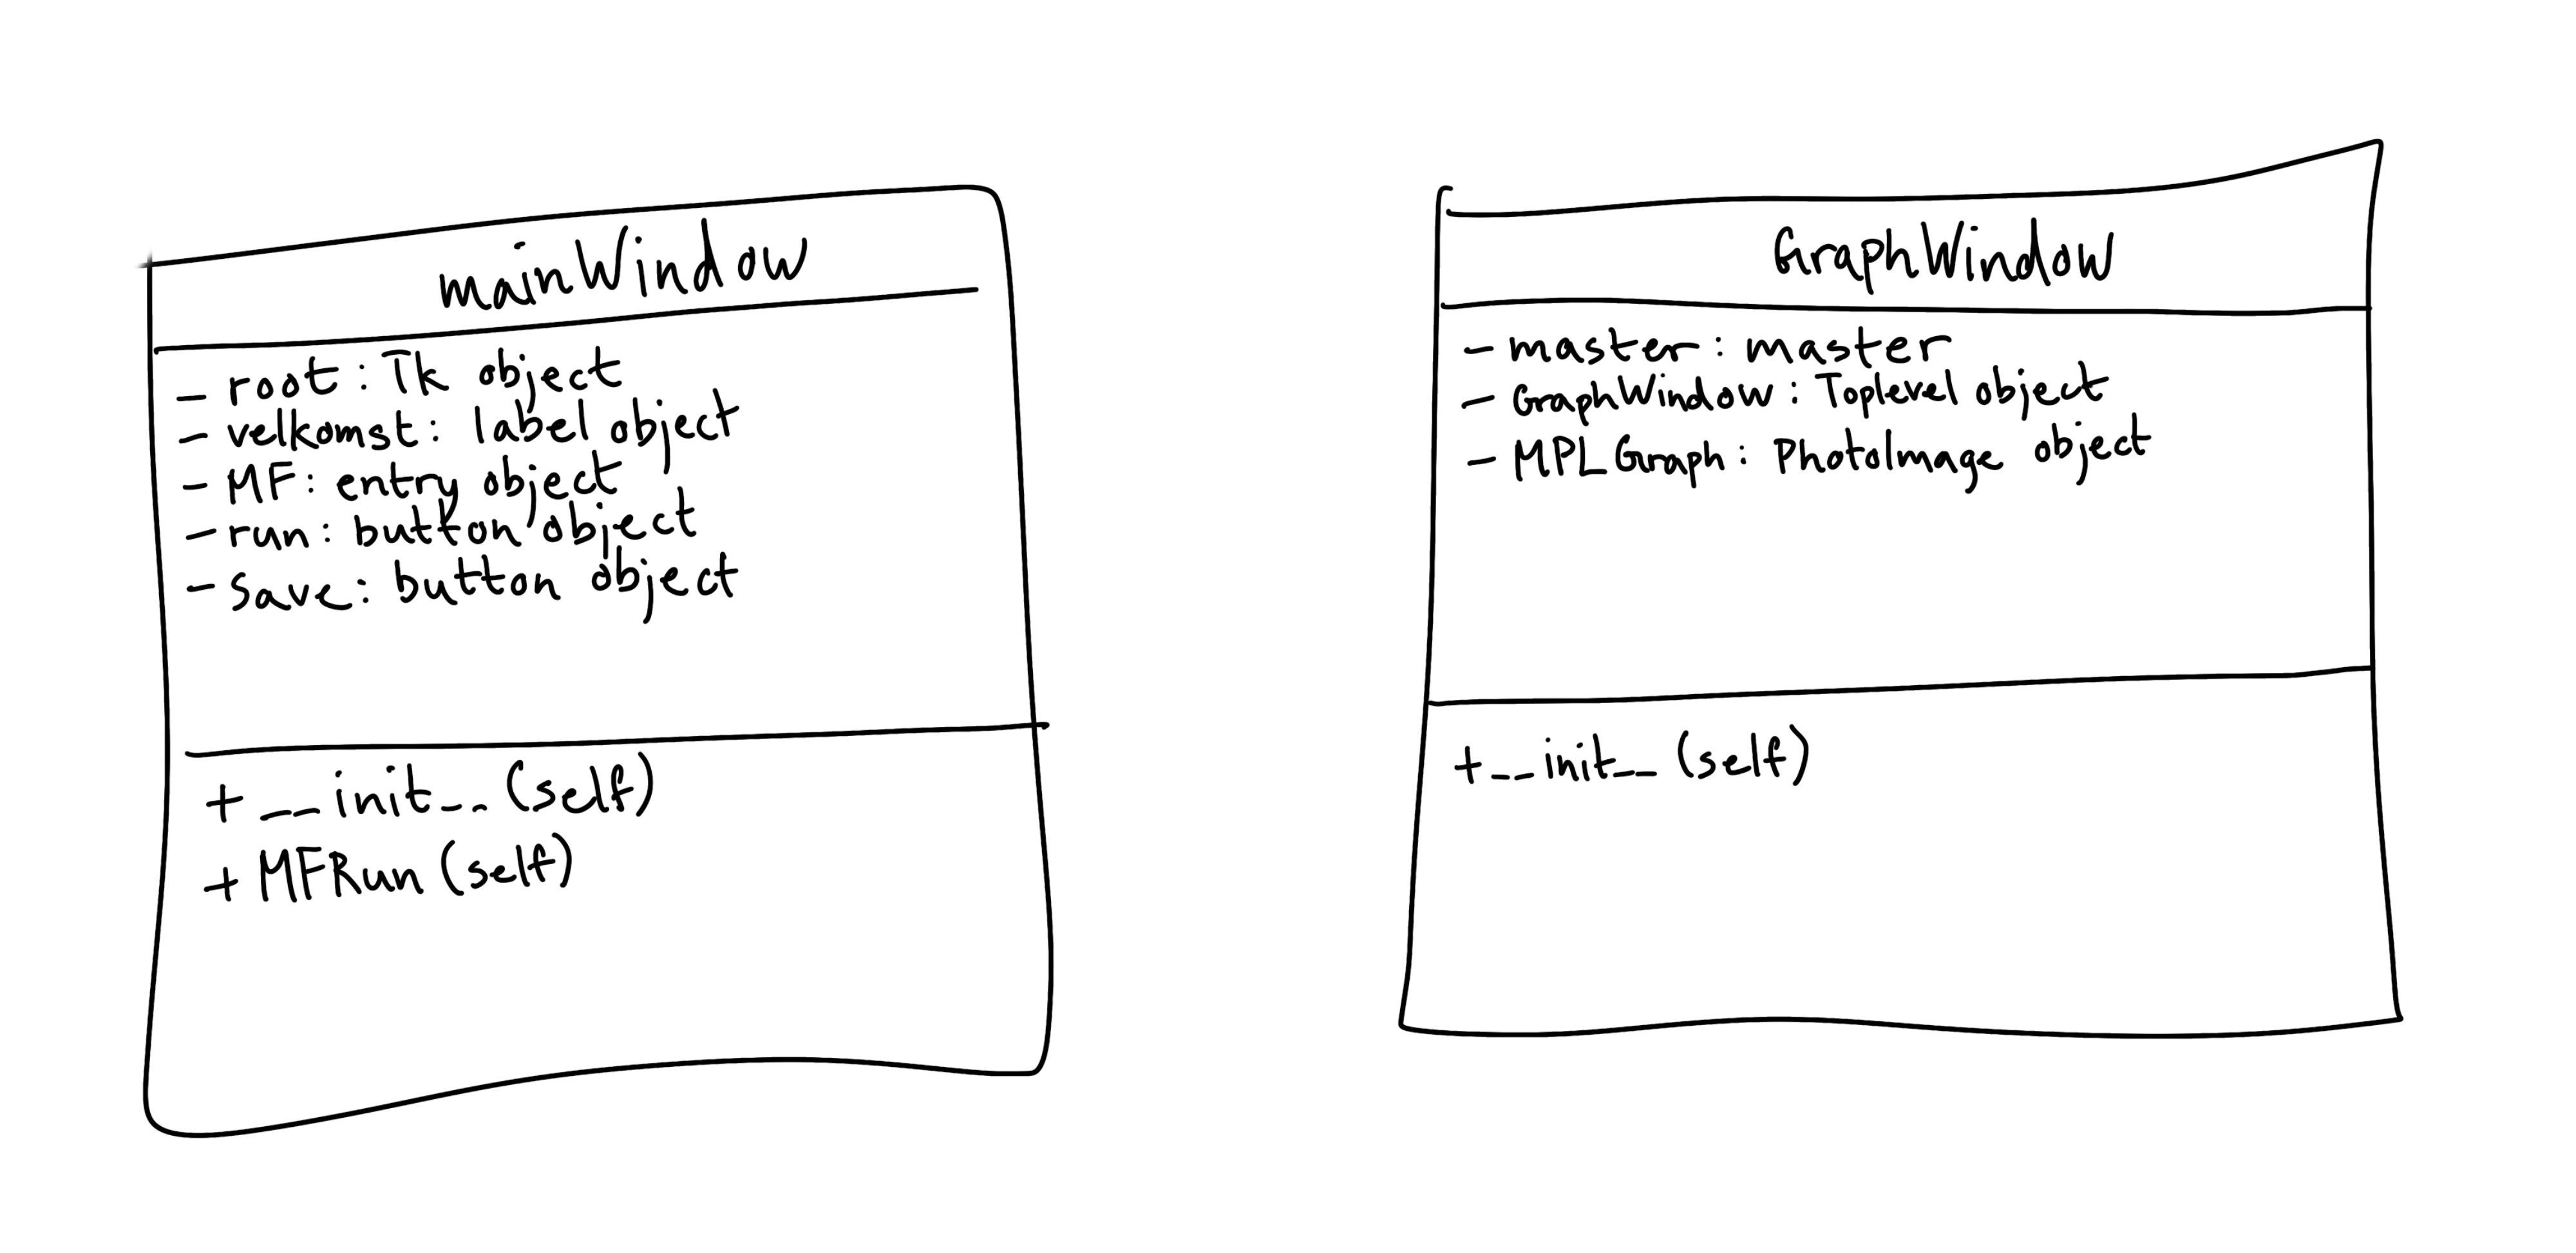 mainWindow
- root: Tk object
- velkomst: label object
- MF: entry object
- run: button object
- save: button object
+ __init__(self)
+ MFRun (self)
GraphWindow
- master: master
- GraphWindow: Toplevel object
- MPLGraph: PhotoImage object
+__init__ (self)